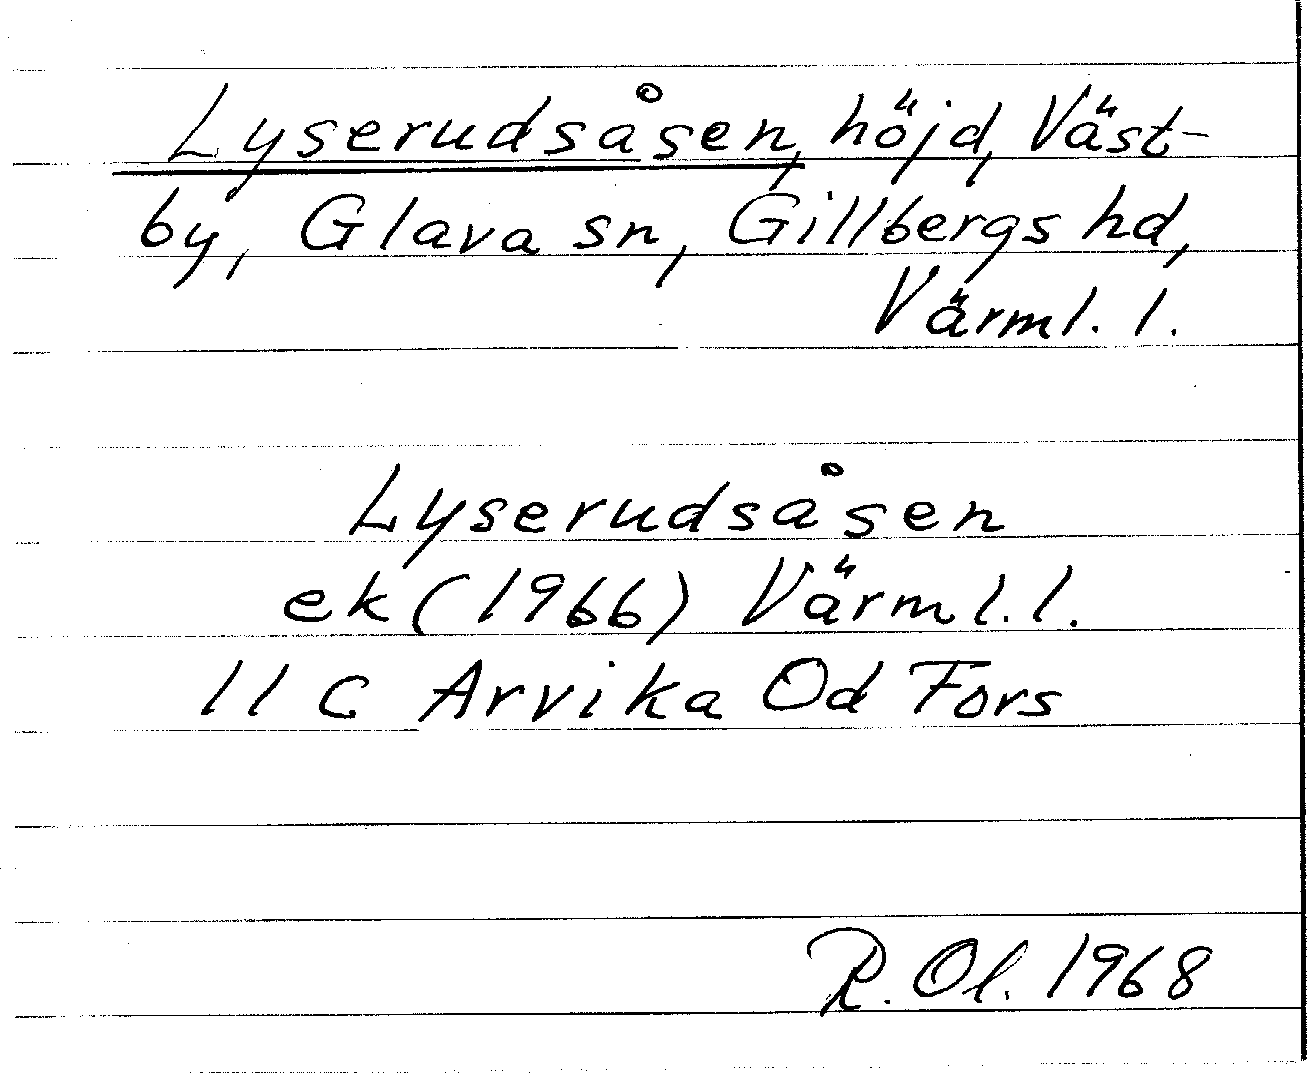 Lyserudsåsen, höjd, Väst-
by, Glava sn, Gillbergs hd,
Värml. l.
Lyserudsåsen
ek (1966) Värml. l.
11 C Arvika Od Fors
R. Ol. 1968